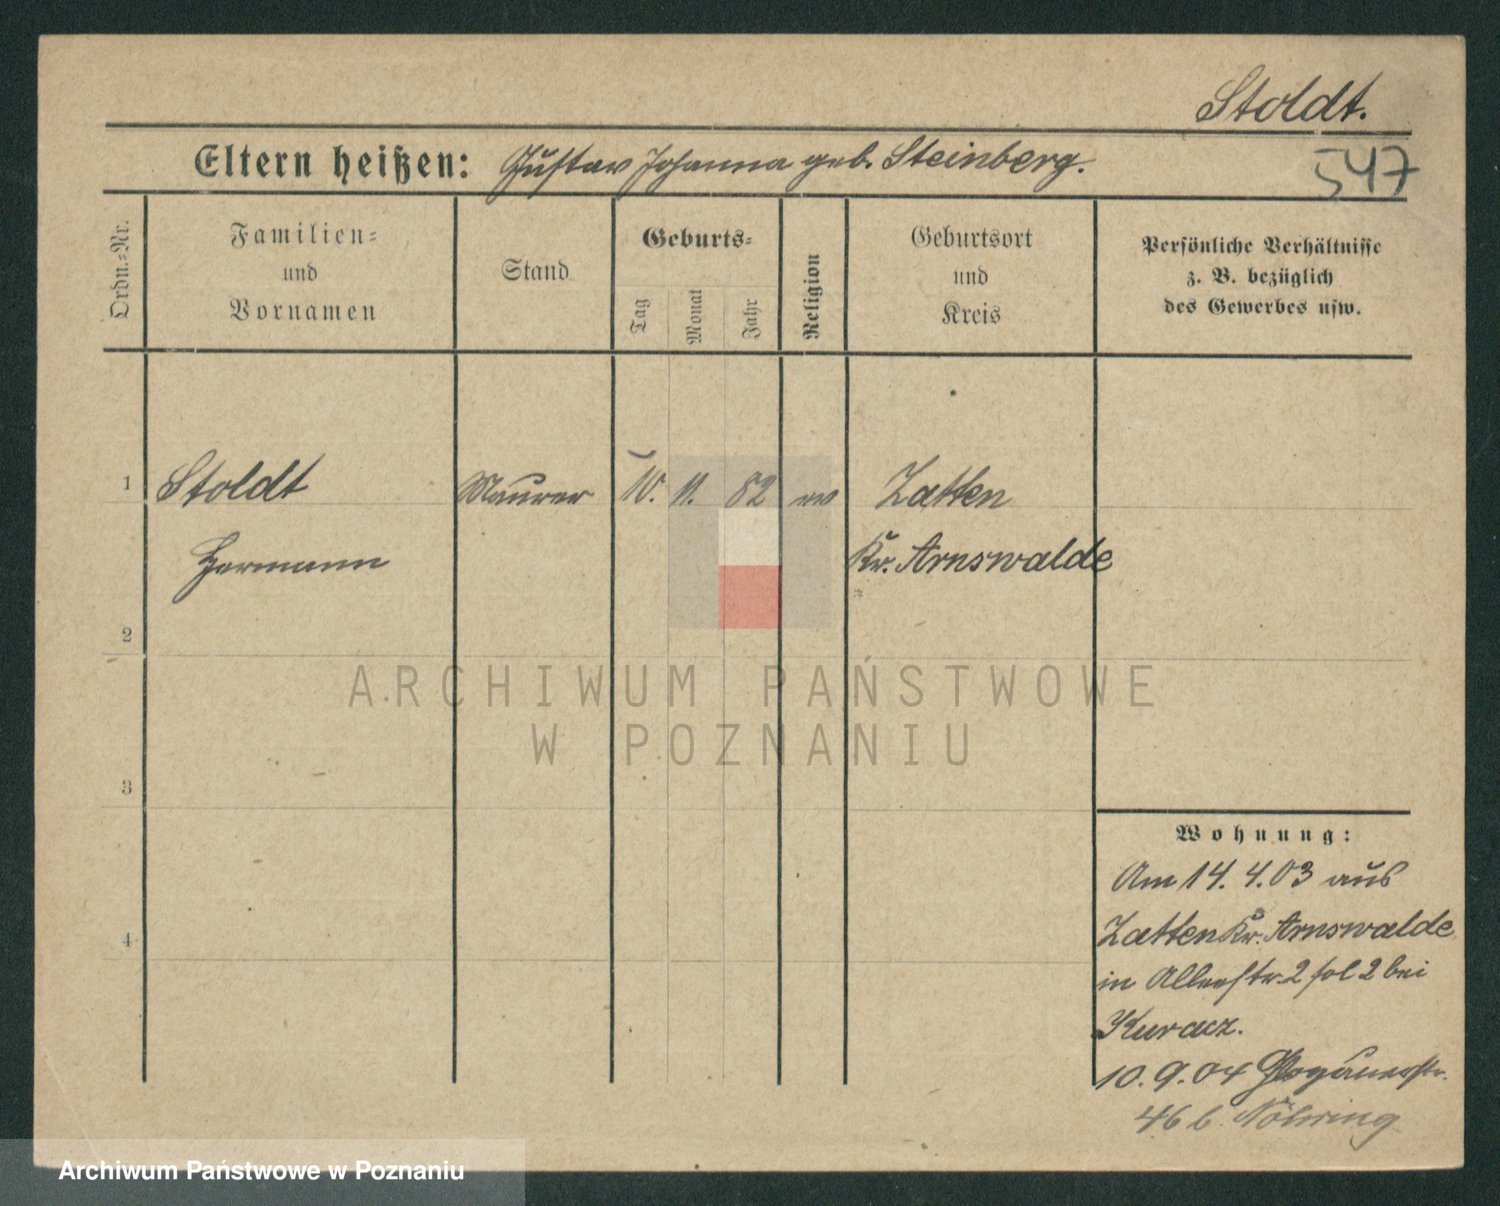 Stoldt.
Eltern heißen: Gustav Johanna geb. Steinberg.
547
Ordn.-Nr.
Familien-
und
Vornamen
Stand
Geburts-
Tag
Monat
Jahr
Religion
Geburtsort
und
Kreis
Persönliche Verhältnisse
z. B. bezüglich
des Gewerbes usw.
1 Stoldt Maurer 10. 11. 82 ev Zatten
Hermann Kr. Arnswalde
2
ARCHIWUM PAŃSTWOWE
W POZNANIU
3
Wohnung:
Am 14. 4. 03 aus
Zatten Kr. Arnswalde
4
in 2 2 bei
Kuracz.
10. 9. 04 Glogauerstr.
46 b. Nöhring
Archiwum Państwowe w Poznaniu